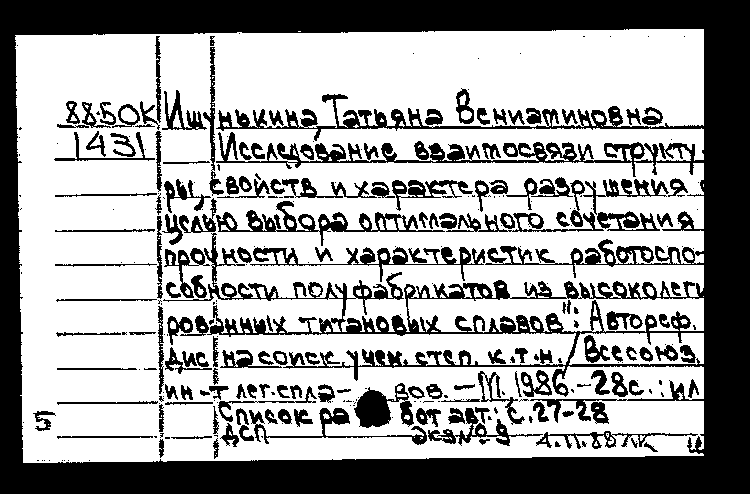 88-5 ОК Ищунькина Татьяна Вениаминовна
1431 Исследование взаимосвязи структу-
ры, свойств и характера разрушения с
целью выбора оптимального сочетания
прочности и характеристик работоспо-
собности полуфабрикатов из высоколеги
рованных титановых сплавов": Автореф.
дис на соиск. учен. степ. к.т.н. / Всесоюз.
ин-т лег. спла- вов. – М. 1986. – 28с.: ил
5 Список ра бот авт.: с. 27-28
ДСП экз № 9 4.11.88